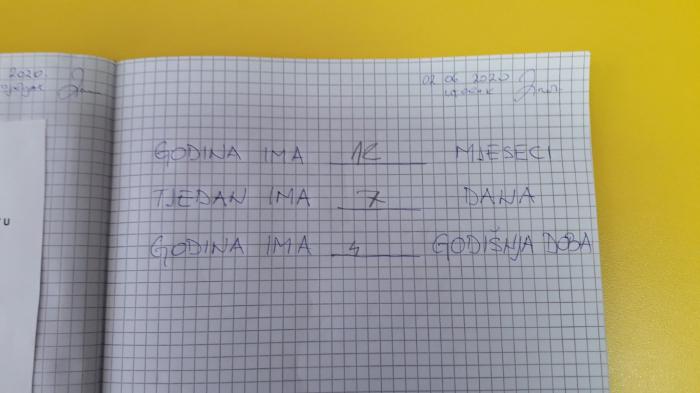 2020.
02 06 2020
utorak
GODINA IMA 12 MJESECI
TJEDAN IMA 7 DANA
GODINA IMA 4 GODIŠNJA DOBA
U